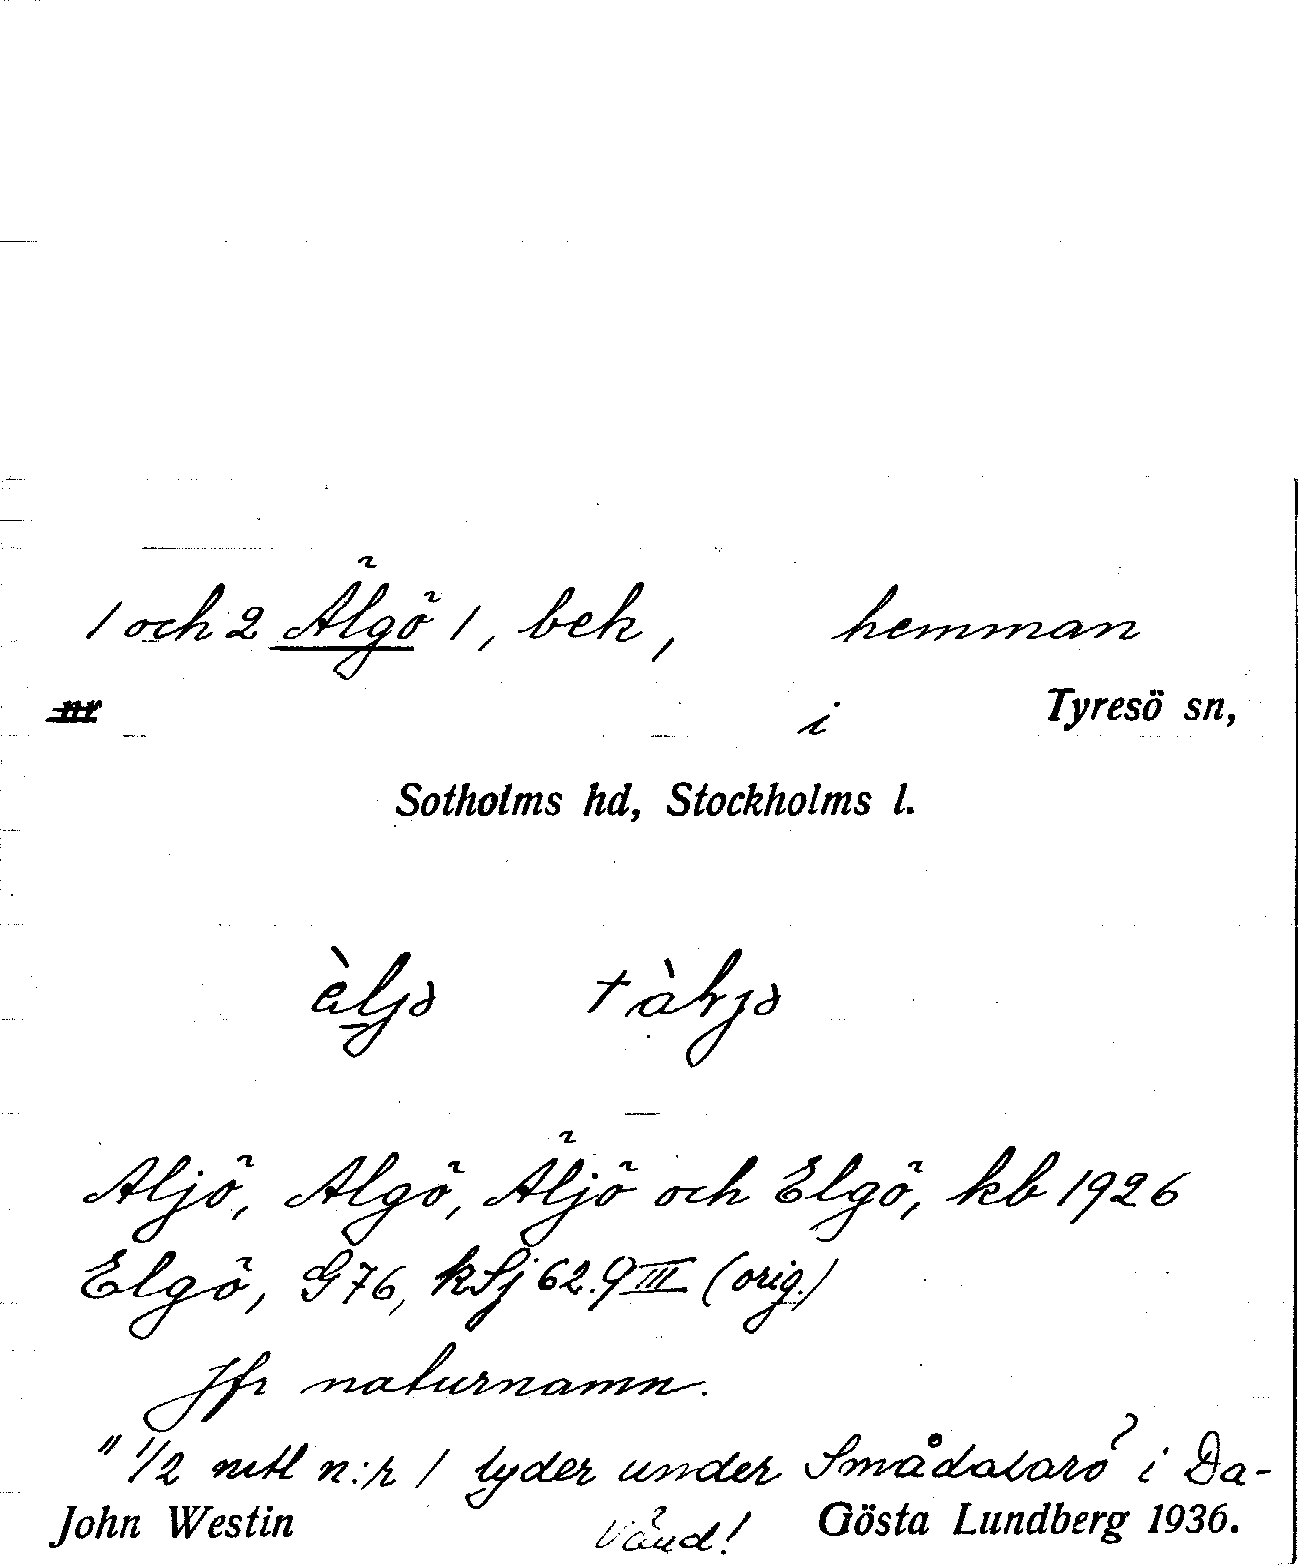 1 och 2 Älgö 1, bek, hemman
nr i Tyresö sn,
Sotholms hd, Stockholms l.
Aljö, Algö, Äljö och Elgö, kb 1926
Elgö, G76, kSj 62.9 III (orig.)
Jfr naturnamn.
" 1/2 mtl n:r 1 lyder under Smådalarö i Da-
John Westin Vänd! Gösta Lundberg 1936.